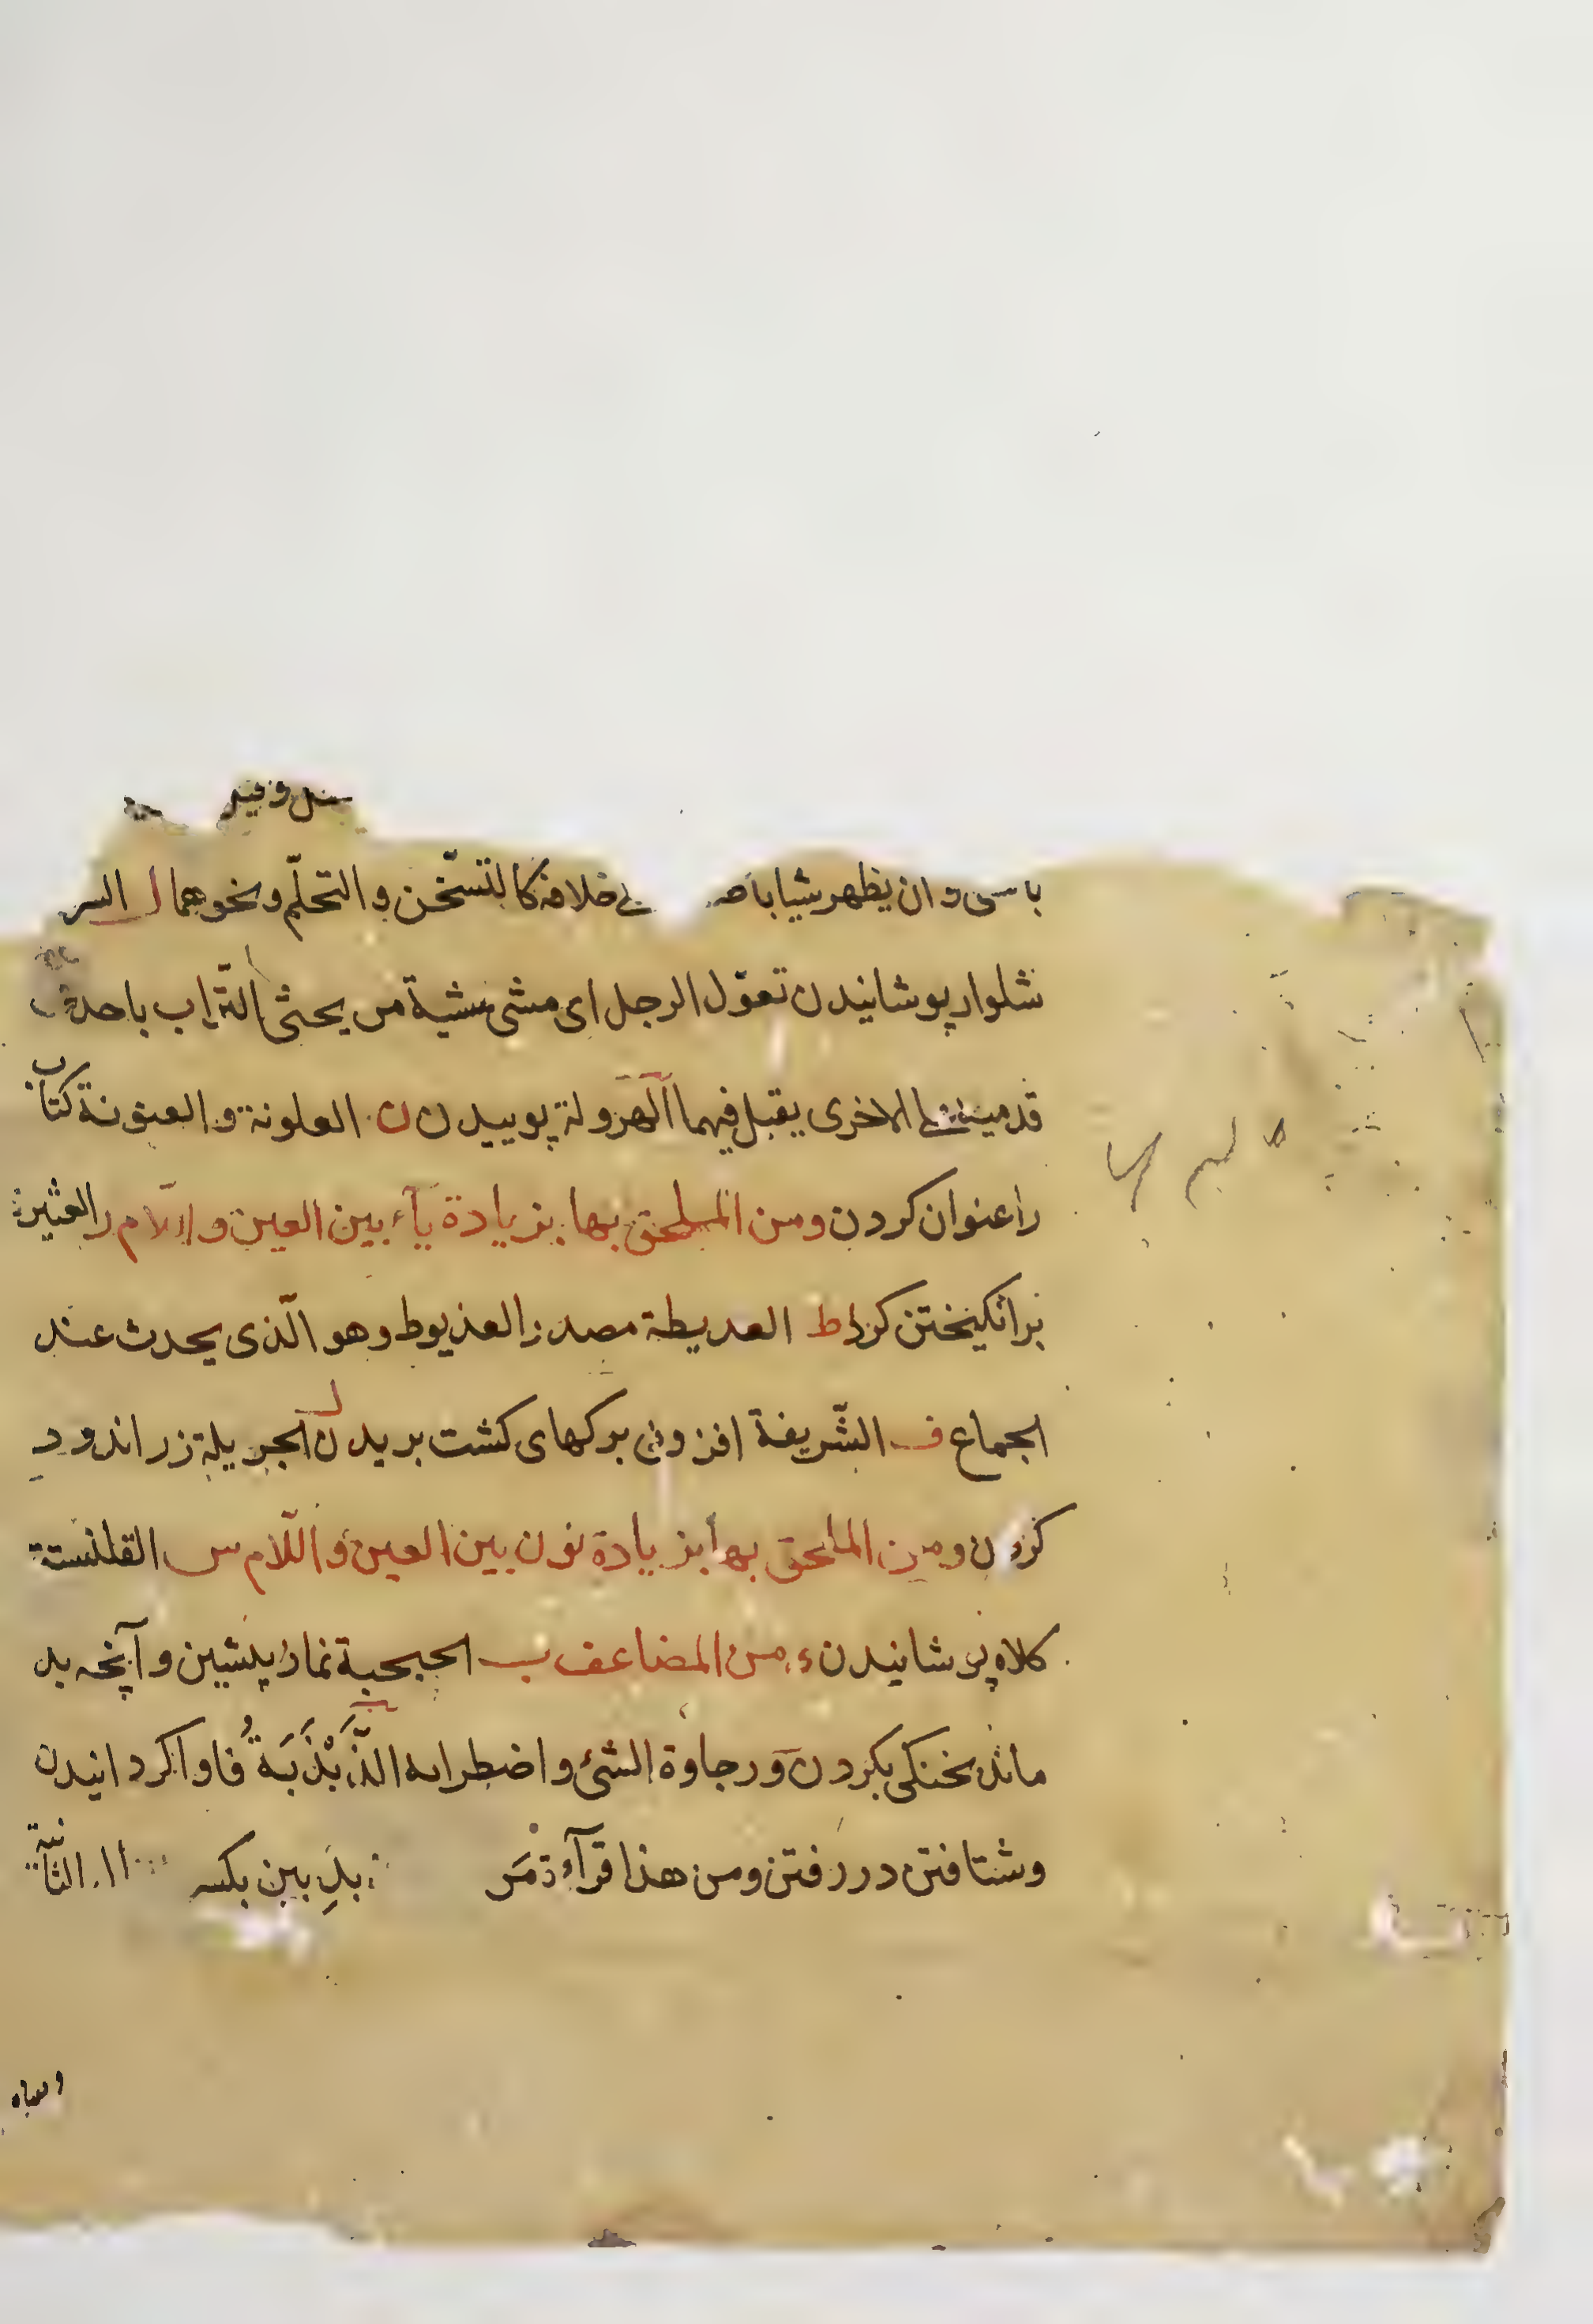 وان يظهر شيا خلافه كالتسخن والتحلم ونحوهما ل السر
شلوار پوشانيدن تعول الرجل اى مشى مشية من يحثى التراب باحدى
الاخرى يقبل فيهما الهرولة پوييدن ن العلونة و العنونة كتاب
را عنوان كردن ومن الملحق بها بزيادة ياء بين العين واللام ر العثيرة
برانكيختن كرد ط العديطة مصدر العذيوط وهو الذى يحدث عند
الجماع ف الشريفة افزونى بركهاى كشت بريدن ل الجريلة زر اندود
كردن ومن الملحق بها بزيادة نون بين العين واللام س القلنسة
كلاه پوشانيدن ومن المضاعف ب الحبحبة نماز پيشين و آنچه بد
ماند بخنكى بكردن ورجاوة الشئ واضطرابه الذَّبْذَبَةُ فاوا كردانيدن
وشتافتن در رفتن ومن هذا قرآءة مَن بلِ بين بكسر الثانية